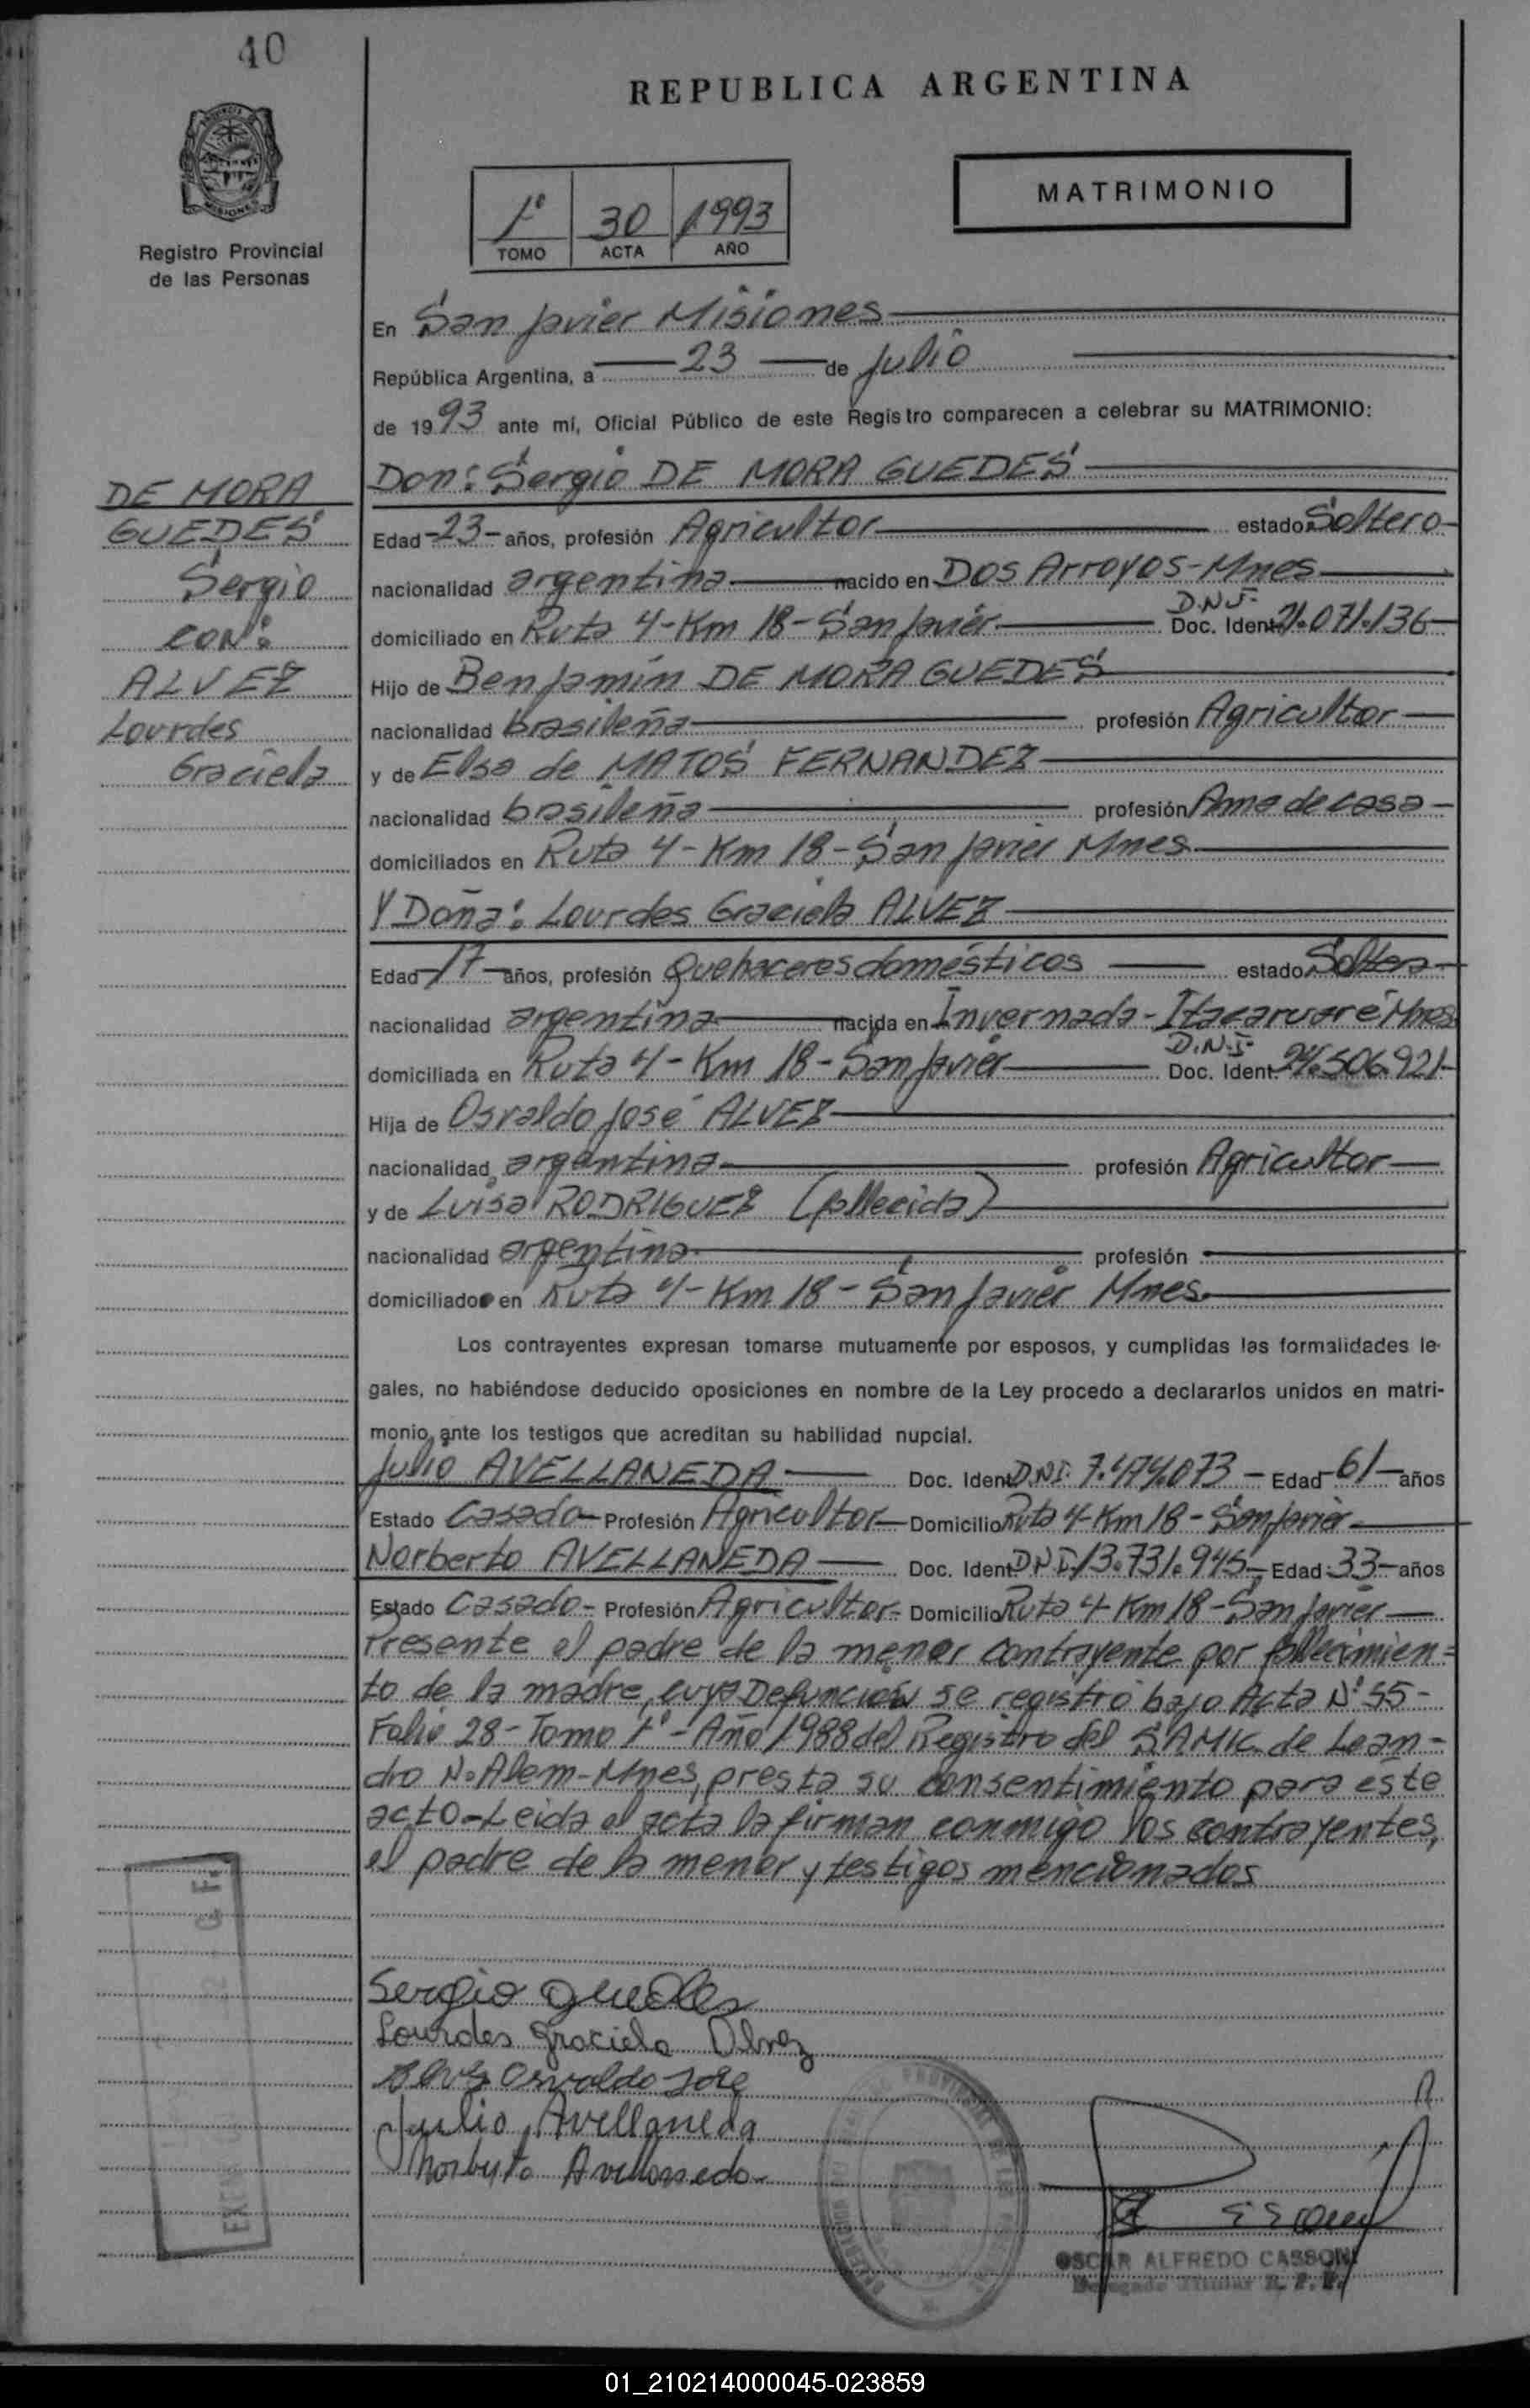 40
REPUBLICA ARGENTINA
MISIONES
Registro Provincial
de las Personas
1º 30 1993
TOMO ACTA AÑO
MATRIMONIO
En San Javier Misiones
República Argentina, a 23 de Julio
de 1993 ante mí, Oficial Público de este Registro comparecen a celebrar su MATRIMONIO:
DE MORA
GUEDES
Sergio
CON:
ALVEZ
Lourdes
Graciela
Don: Sergio DE MORA GUEDES
Edad -23- años, profesión Agricultor estado Soltero-
nacionalidad argentina nacido en Dos Arroyos-Mnes
domiciliado en Ruta 4-Km 18-San Javier D.N.I. Doc. Ident. 21.071.136
Hijo de Benjamín DE MORA GUEDES
nacionalidad brasileña profesión Agricultor
y de Elsa de MATOS FERNANDEZ
nacionalidad brasileña profesión Ama de casa
domiciliados en Ruta 4-Km 18-San Javier Mnes
Y Doña: Lourdes Graciela ALVEZ
Edad -17- años, profesión Quehaceres domésticos estado Soltera
nacionalidad argentina nacida en Invernada-Itacaruaré Mnes
domiciliada en Ruta 4-Km 18-San Javier D.N.I. Doc. Ident. 24.506.921-
Hija de Osvaldo José ALVEZ
nacionalidad argentina profesión Agricultor
y de Luisa RODRIGUEZ (fallecida)
nacionalidad argentina profesión
domiciliado en Ruta 4-Km 18-San Javier Mnes.
Los contrayentes expresan tomarse mutuamente por esposos, y cumplidas las formalidades le-
gales, no habiéndose deducido oposiciones en nombre de la Ley procedo a declararlos unidos en matri-
monio, ante los testigos que acreditan su habilidad nupcial.
Julio AVELLANEDA Doc. Ident. D.N.I. 7.474.073- Edad 61 años
Estado Casado- Profesión Agricultor Domicilio Ruta 4-Km 18-San Javier
Norberto AVELLANEDA Doc. Ident. D.N.I. 13.731.945- Edad: 33- años
Estado Casado- Profesión Agricultor- Domicilio Ruta 4 Km 18-San Javier
Presente el padre de la menor contrayente por fallecimien=
to de la madre, cuya Defunción se registró bajo Acta Nº 55-
Folio 28-Tomo 1º-Año 1988 del Registro del SAMIC de Lean-
dro N. Alem-Mnes, presta su consentimiento para este
acto-Leida el acta la firman conmigo los contrayentes,
el padre de la menor y testigos mencionados
Sergio guedes
Lourdes Graciela Alvez
Alvez Osvaldo Jose
Julio Avellaneda
Norberto Avellaneda
OSCAR ALFREDO CASSONI
Delegado Titular R. P. P.
01_210214000045-023859